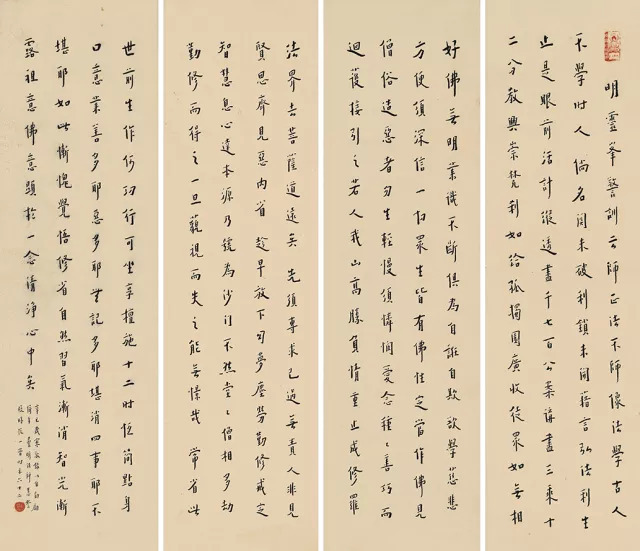 明靈峯警訓云師正法不師像法學古人
不學時人倘名關未破利鎖未開藉言弘法利生
止是眼前活計縱透盡千七百公案講盡三乘十
二分教興崇梵剎如給孤獨園廣收徒眾如無相
好佛無明業識不斷俱為自誑自欺欲學慈悲
方便須深信一切眾生皆有佛性定當作佛見
僧俗造惡者勿生輕慢須憐憫愛念種種善巧而
迴護接引之若人我山高勝負情重止成修羅
法界去菩薩道遠矣先須專求己過毋責人非見
賢思齊見惡內省趁早放下勾夢塵勞勤修戒定
智慧息心達本源乃號為沙門不然堂堂僧相多劫
勤修而得之一旦藐視而失之能無懍哉常省此
世前生作何功行可坐享檀施十二時恆簡點身
口意業善多耶惡多耶無記多耶堪消四事耶不
堪耶如此慚愧覺悟修省自然習氣漸消智光漸
露祖意佛意顯於一念清淨心中矣